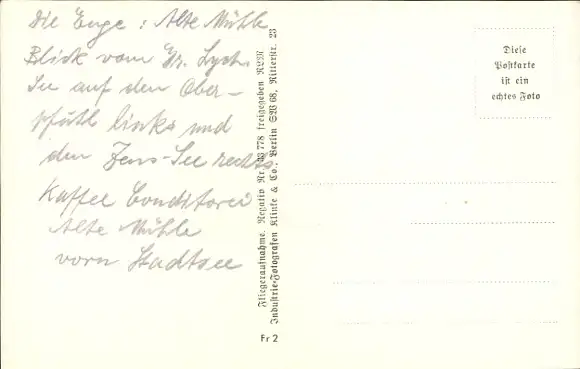 Die Enge: Alte Mühle
Blick vom Gr. Lych.
See auf den Ober-
pfuhl links und
den Zens-See rechts
Kaffee Conditorei
Alte Mühle
vorn Stadtsee
Fliegeraufnahme. Negativ Nr. 778 freigegeben RLM
Industrie-Fotografen Klinke & Co., Berlin SW 68, Ritterstr. 23
Fr 2
Diese
Postkarte
ist ein
echtes Foto